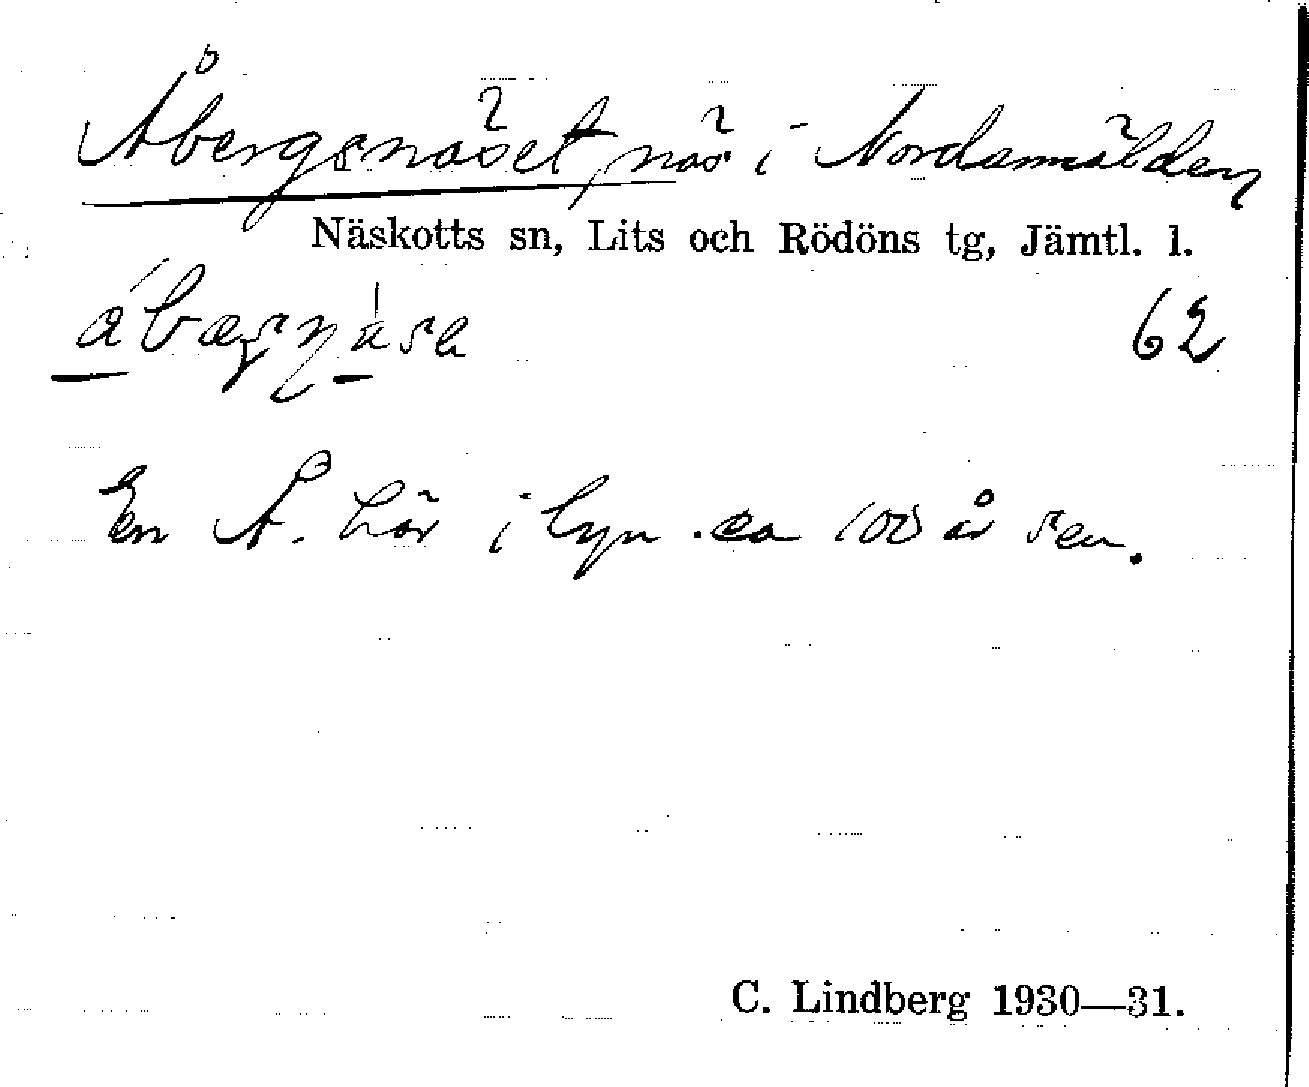 Åbergsnäset, näs i Nordannälden
Näskotts sn, Lits och Rödöns tg, Jämtl. l.
62
En Å. här i byn ca 100 år sen.
C. Lindberg 1930—31.